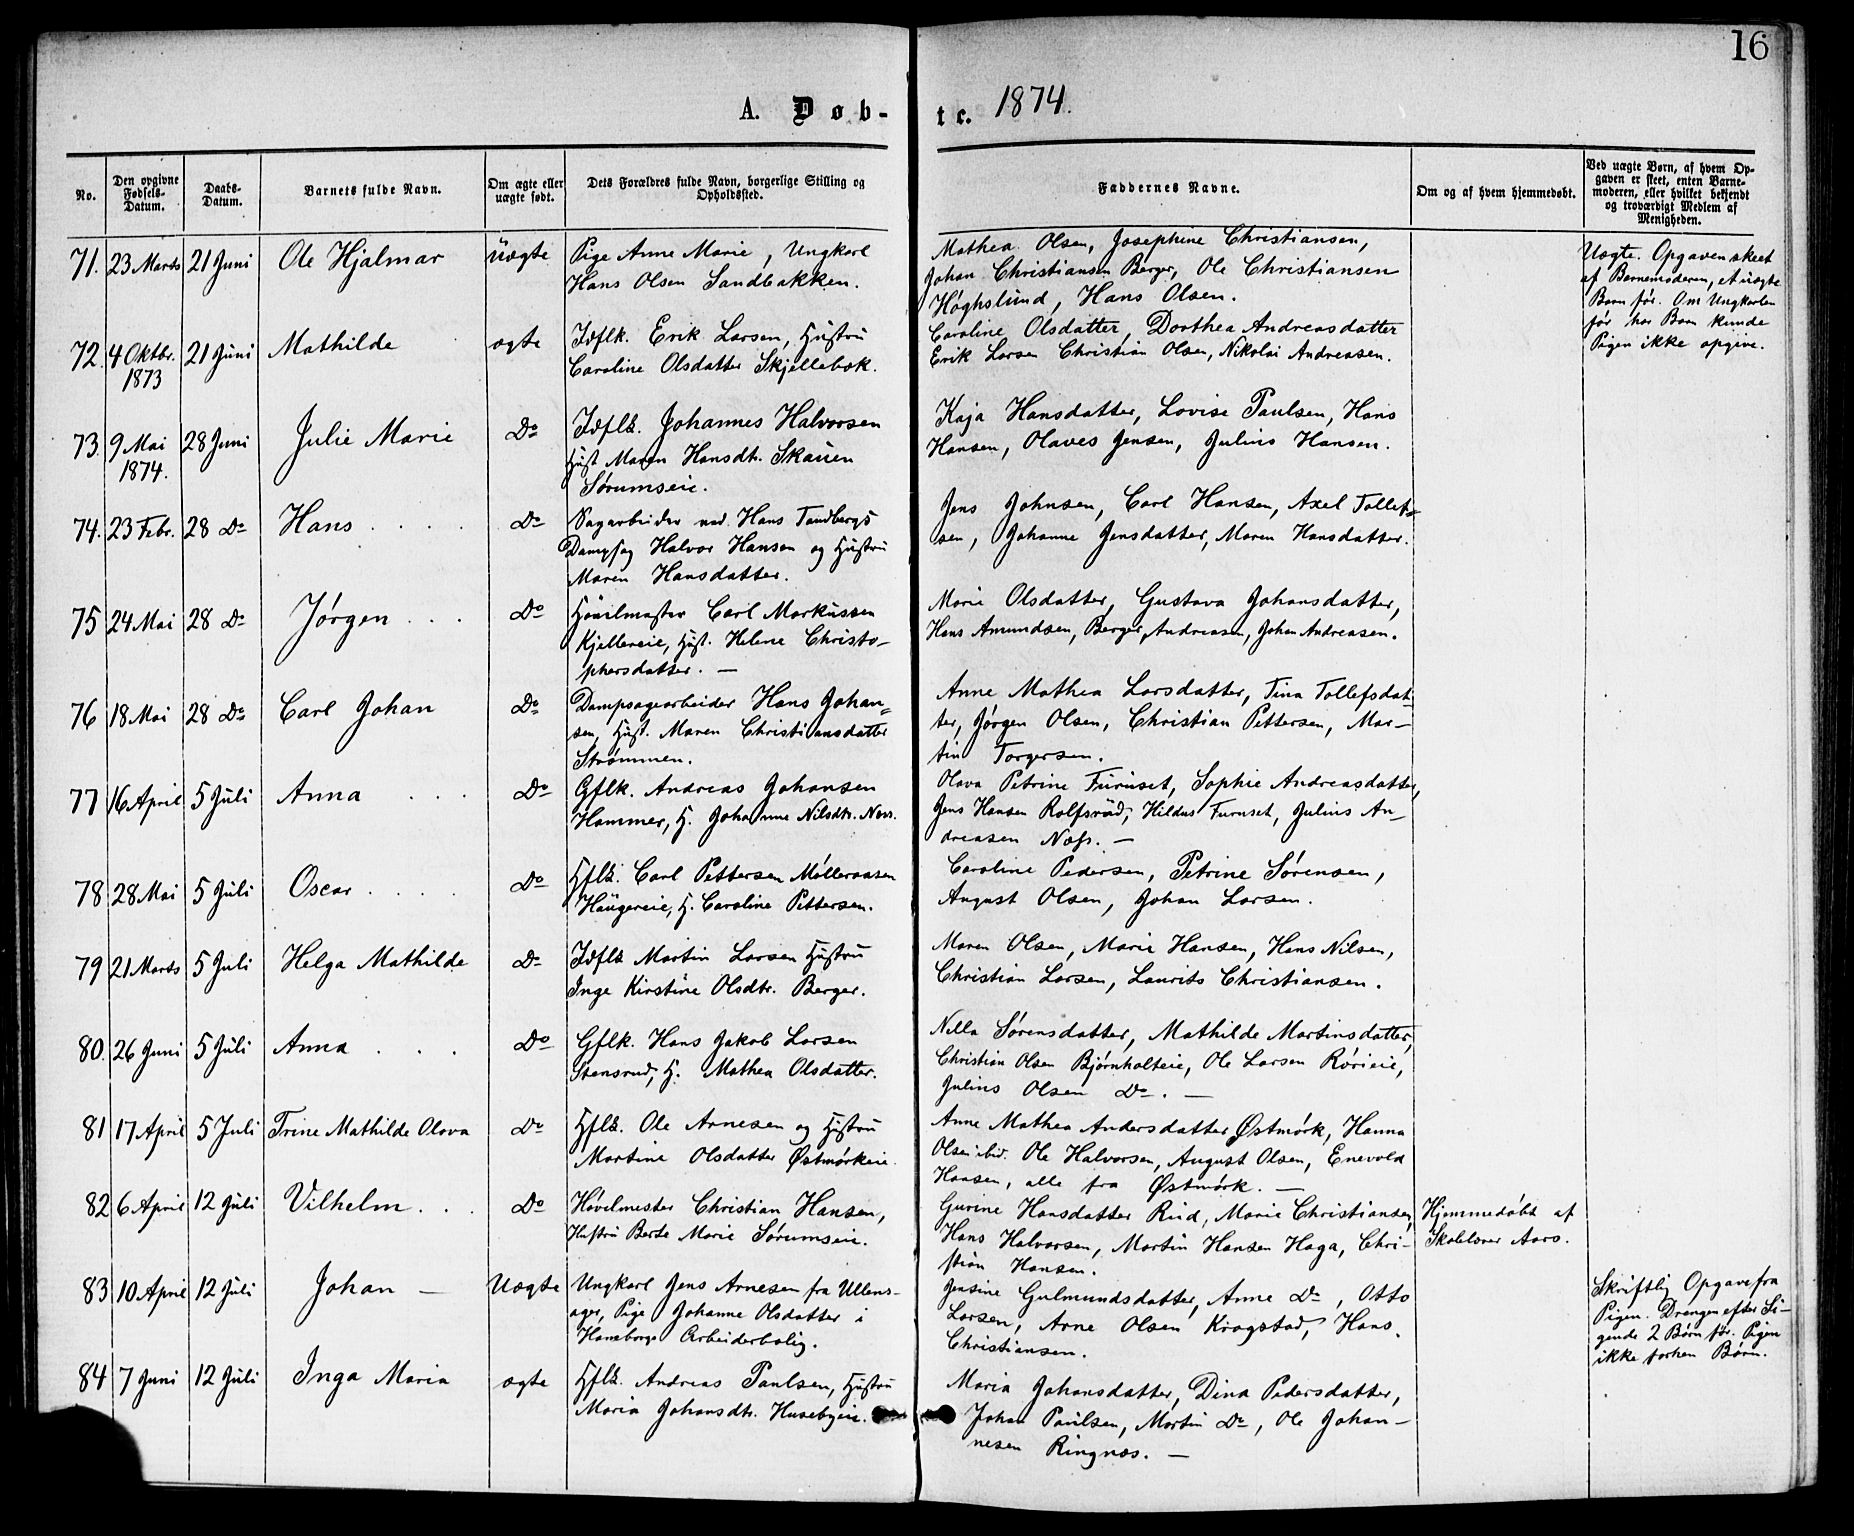 16
A. Døb-
te. 1874.
No.
Den opgivne Fødsels-Datum.
Daabs-Datum.
Barnets fulde Navn.
Om ægte eller uægte født.
Dets Forældres fulde Navn, borgerlige Stilling og Opholdssted.
Faddernes Navne.
Om og af hvem hjemmedøbt.
Ved uægte Børn, af hvem Op-
gaven er skeet, enten Barne-
moderen, eller hvilket bekjendt
og troværdigt Medlem af
Menigheden.
71. 23 Marts 21 Juni Ole Hjalmar uægte Pige Anne Marie, Ungkarl
Hans Olsen Sandbakken.
Mathea Olsen, Josephine Christiansen,
Johan Christiansen Berger, Ole Christiansen
Høghslund, Hans Olsen.
Uægte. Opgaven skeet
af Barnemoderen, et uægte
Barn før. Om Ungkarlen
før har Barn kunde
Pigen ikke opgive.
72. 4 Oktbr. 1873 21 Juni Mathilde ægte Idflk. Erik Larsen, Hustru
Caroline Olsdatter Skjellebæk.
Caroline Olsdatter, Dorthea Andreasdatter
Erik Larsen Christian Olsen, Nikolai Andreasen.
73. 9 Mai 1874. 28 Juni Julie Marie Do Idflk. Johannes Halvorsen
Hust Maren Hansdtr. Skauen
Sørumseie.
Kaja Hansdatter, Lovise Paulsen, Hans
Hansen, Olaves Jensen, Julius Hansen.
74. 23 Febr. 28 Do Hans . . . . Do Sagarbeider ved Hans Tandbergs
Dampsag Halvor Hansen og Hustru
Maren Hansdatter.
Jens Johnsen, Carl Hansen, Axel Tollef-
sen, Johanne Jensdatter, Maren Hansdatter.
75 24 Mai 28 Do Jørgen . . . Do Høvilmester Carl Markussen
Kjellereie, Hust. Helene Christo-
phersdatter. —
Marie Olsdatter, Gustava Johansdatter,
Hans Amundsen, Berger Andreasen, Johan Andreasen.
76 18 Mai 28 Do Carl Johan Do Dampsagarbeider Hans Johan-
sen, Hust. Maren Christiansdatter
Strømmen.
Anne Mathea Larsdatter, Tina Tollefsdat-
ter, Jørgen Olsen, Christian Pettersen, Mar-
tin Torgersen.
77 16 April 5 Juli Anna . . . Do Gflk. Andreas Johansen
Hammer, H. Johanne Nilsdtr. Næss.
Olava Petrine Furuset, Sophie Andreasdatter,
Jens Hansen Rolfsrud, Hildus Furuset, Julius An-
dreasen Næss. —
78 28 Mai 5 Juli Oscar . . . . Do Hflk. Carl Pettersen Mølleraasen
Haugereie, H. Caroline Pettersen.
Caroline Pedersen, Petrine Sørensen,
August Olsen, Johan Larsen.
79 21 Marts 5 Juli Helga Mathilde Do Idflk Martin Larsen Hustru
Inge Kirstine Olsdtr. Berger.
Maren Olsen, Marie Hansen, Hans Nilsen,
Christian Larsen, Laurits Christiansen.
80. 26 Juni 5 Juli Anna . . . Do Gflk. Hans Jakob Larsen
Stensrud, H. Mathea Olsdatter.
Nilla Sørensdatter, Mathilde Martinsdatter,
Christian Olsen Bjørnholteie, Ole Larsen Rørieie,
Julius Olsen Do. —
81 17 April 5 Juli Trine Mathilde Olava Do Hflk. Ole Arnesen og Hustru
Martine Olsdatter Østmørkeie
Anne Mathea Andersdatter Østmørk, Hanna
Olsen ibid. Ole Halvorsen, August Olsen, Enevold
Hansen, alle fra Østmørk. —
82 6 April 12 Juli Vilhelm . . . Do Høvelmester Christian Hansen,
Hustru Berte Marie Sørumseie.
Gurine Hansdatter Rud, Marie Christiansen,
Hans Halvorsen, Martin Hansen Haga, Chri-
stian Hansen.
Hjemmedøbt af
Skolelærer Aars.
83 10 April 12 Juli Johan — Uægte Ungkarl Jens Arnesen fra Ullens-
ager, Pige Johanne Olsdatter i
Haneborgs Arbeiderbolig.
Jensine Gulmundsdatter, Anne Do, Otto
Larsen, Arne Olsen Kragstad, Hans
Christiansen.
Skriftlig Opgave fra
Pigen. Drengen efter Si-
gende 2 Børn før. Pigen
ikke forhen Børn.
84 7 Juni 12 Juli Inga Maria ægte Hflk. Andreas Paulsen, Hustru
Maria Johansdtr. Husebyeie.
Maria Johansdatter, Dina Pedersdatter,
Johan Paulsen, Martin Do, Ole Johan-
nesen Ringnæs. —